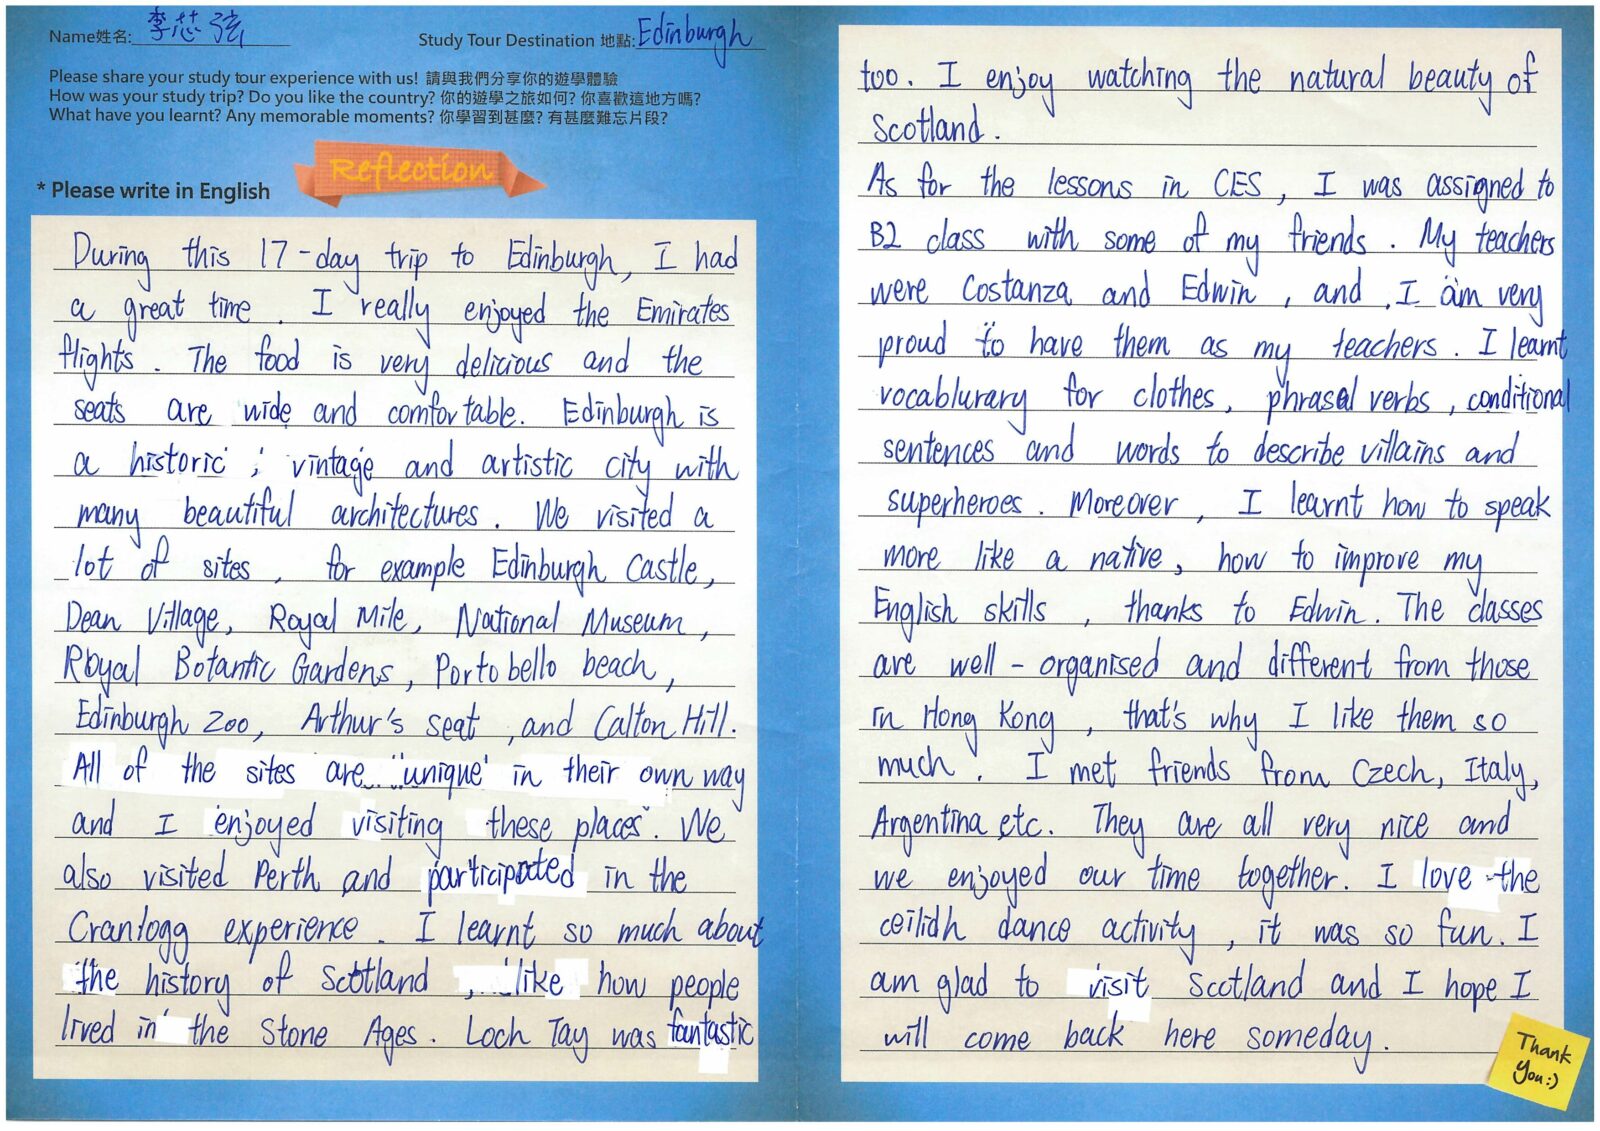 Name姓名: 李芯弦
Study Tour Destination 地點: Edinburgh
Please share your study tour experience with us! 請與我們分享你的遊學體驗
How was your study trip? Do you like the country? 你的遊學之旅如何? 你喜歡這地方嗎?
What have you learnt? Any memorable moments? 你學習到甚麼? 有甚麼難忘片段?
Reflection
* Please write in English
During this 17-day trip to Edinburgh, I had
a great time. I really enjoyed the Emirates
flights. The food is very delicious and the
seats are wide and comfortable. Edinburgh is
a historic, vintage and artistic city with
many beautiful architectures. We visited a
lot of sites, for example Edinburgh Castle,
Dean Village, Royal Mile, National Museum,
Royal Botantic Gardens, Portobello beach,
Edinburgh Zoo, Arthur's seat, and Calton Hill.
All of the sites are unique in their own way
and I enjoyed visiting these places. We
also visited Perth and participated in the
Cranlogg experience. I learnt so much about
the history of Scotland, like how people
lived in the Stone Ages. Loch Tay was fantastic
too. I enjoy watching the natural beauty of
Scotland.
As for the lessons in CES, I was assigned to
B2 class with some of my friends. My teachers
were Costanza and Edwin, and I am very
proud to have them as my teachers. I learnt
vocablurary for clothes, phrasal verbs, conditional
sentences and words to describe villains and
superheroes. Moreover, I learnt how to speak
more like a native, how to improve my
English skills, thanks to Edwin. The classes
are well-organised and different from those
in Hong Kong, that's why I like them so
much. I met friends from Czech, Italy,
Argentina etc. They are all very nice and
we enjoyed our time together. I love the
ceilidh dance activity, it was so fun. I
am glad to visit Scotland and I hope I
will come back here someday.
Thank
You:)